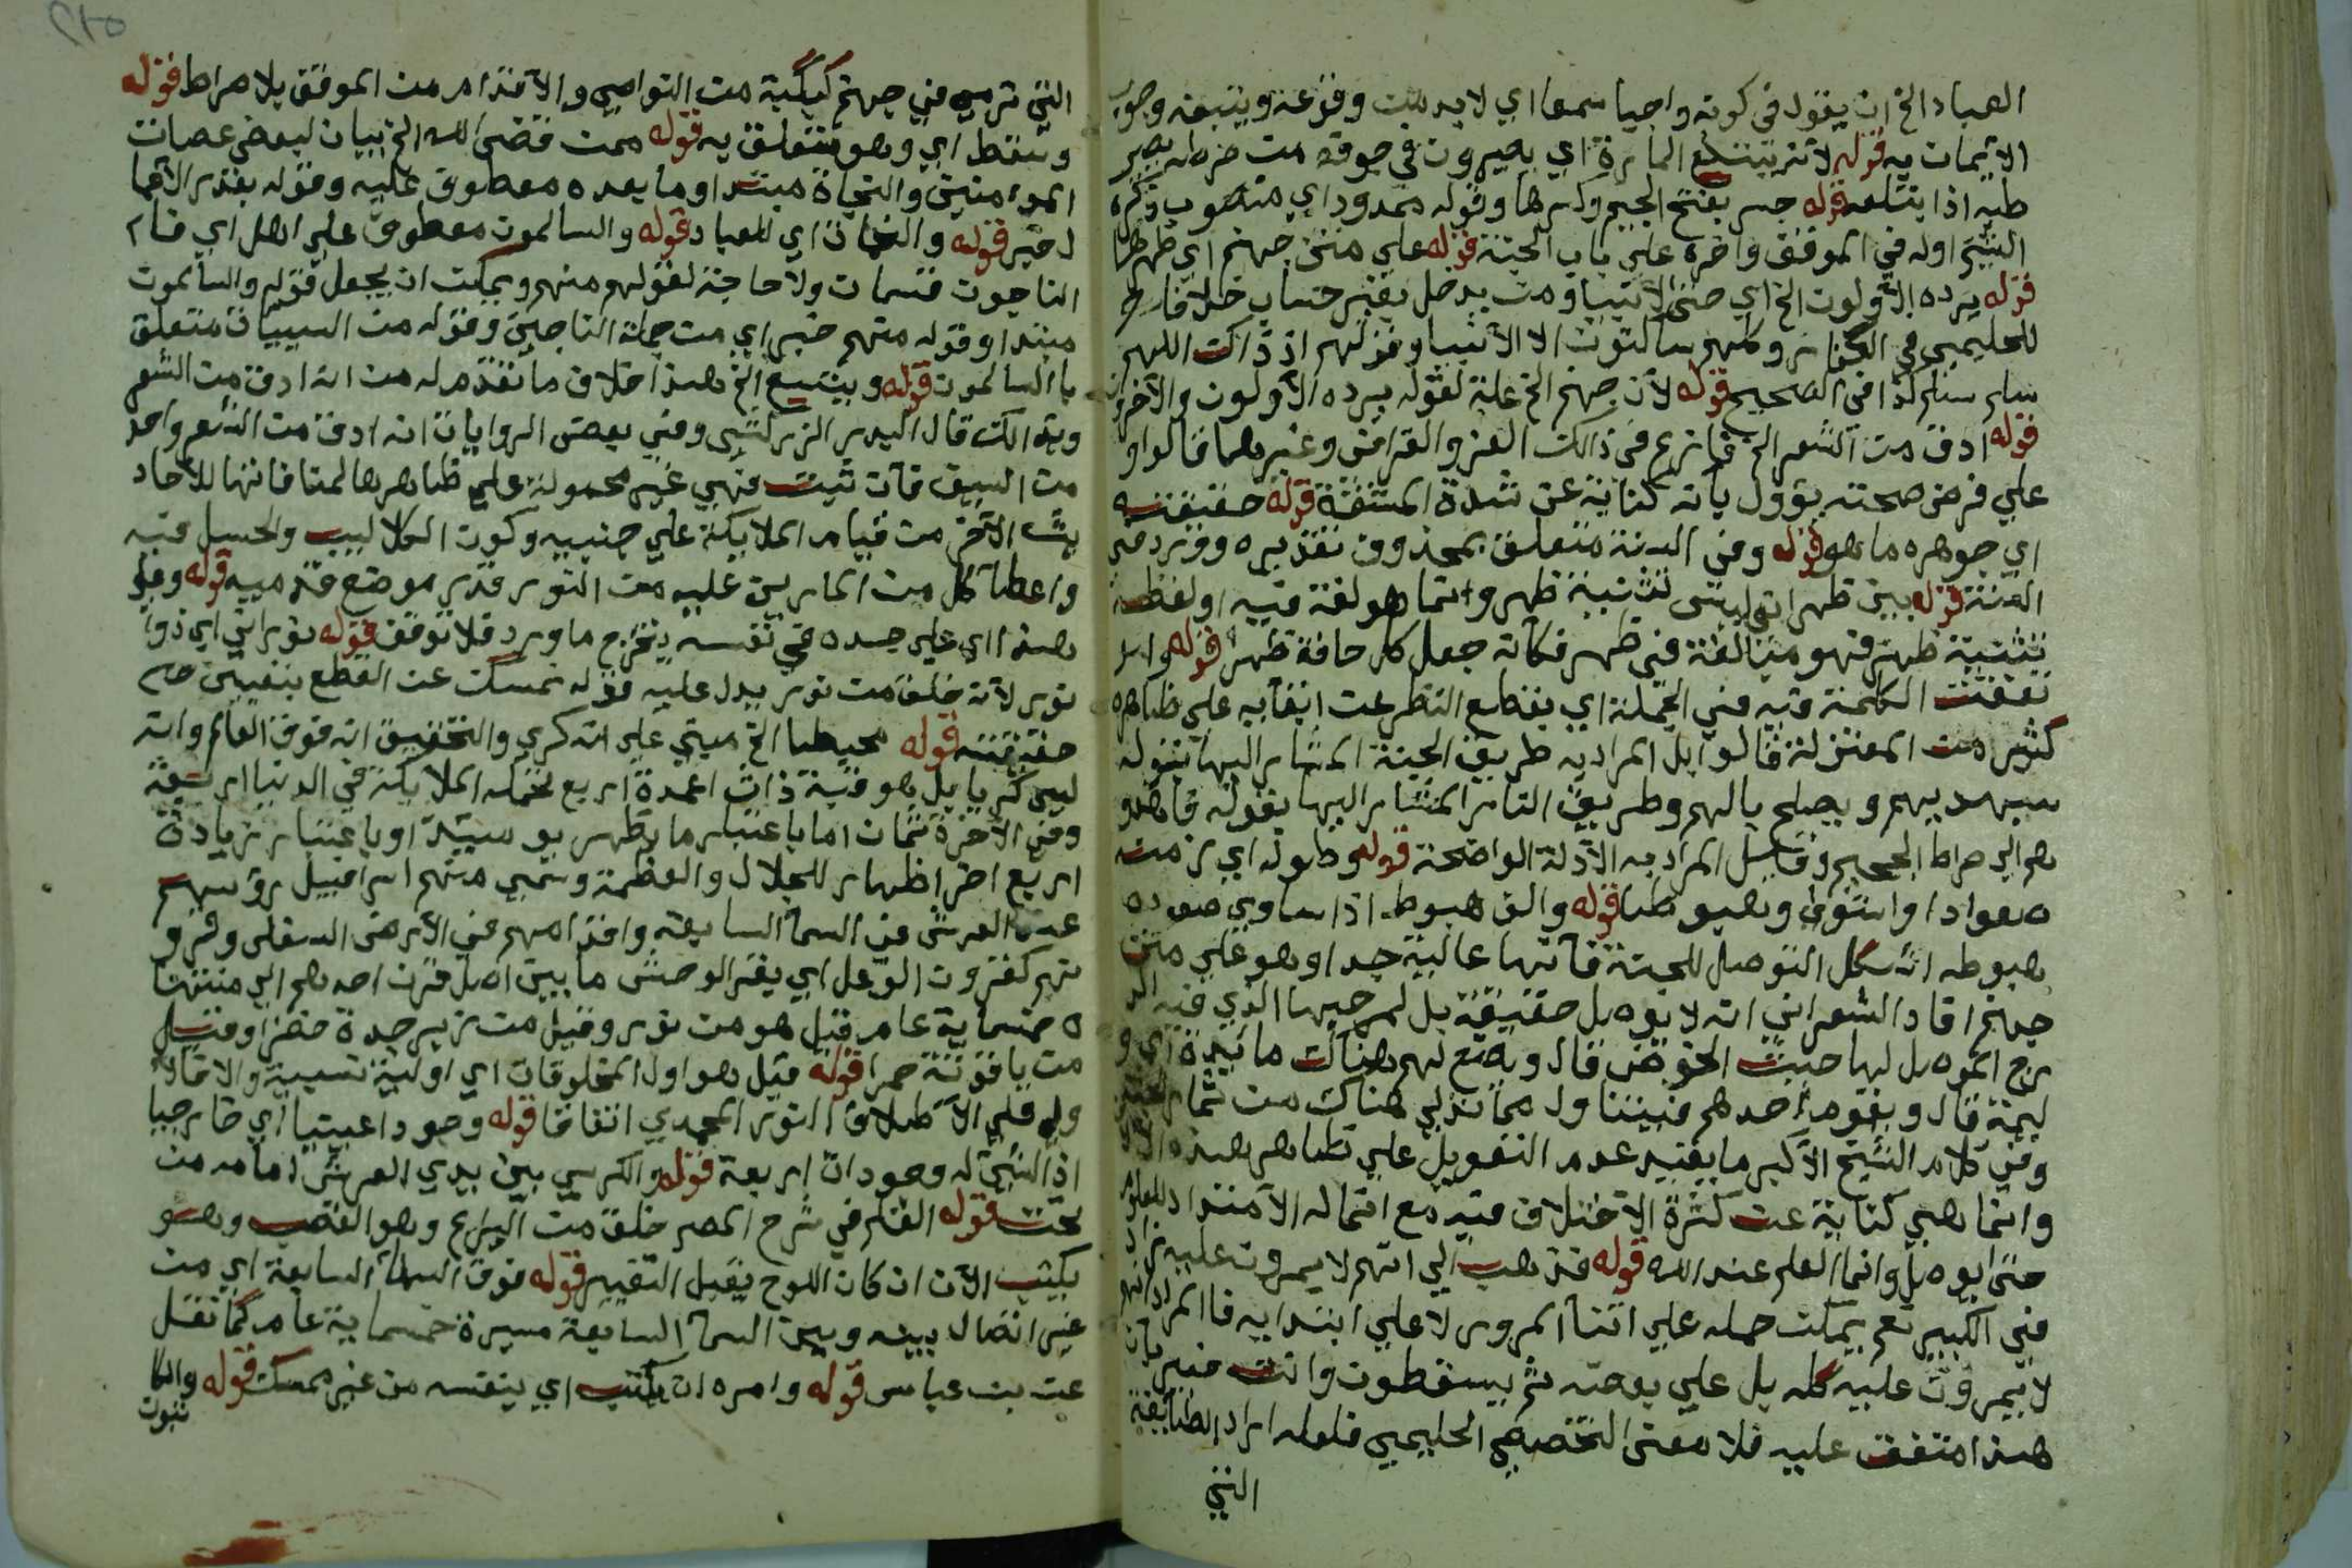 العباد الخ ان يقول في كونه واجبا سمعا اي لا بد من وقوعه ويتبعه وجوب
الايمان به قوله لانه يبتلع المارة اي يصيرون في جوفه من صرطه يصر
طه اذا ابتلعه قوله جسر بفتح الجيم وكسرها وقوله ممدود اي منصوب ذكره
الشيخ اوله في الموقف واخره علي باب الجنة قوله علي متن جهنم اي ظهرها
قوله يرده الاولون الخ اي حتي الانبيا ومن يدخل بغير حساب خلافا
للحليمي في الكفار وكلهم ساكتون الا الانبيا وقولهم اذ ذاك اللهم
سلم سلم كذا في الصحيح قوله لان جهنم الخ علة لقوله يرده الاولون والآخرون
قوله ادق من الشعر الخ فانزع في ذالك العز والقرافي وغيرهما قالوا و
علي فرض صحته يؤول بأنه كناية عن شدة المشقة قوله حقيقته
اي جوهره ما هو قوله وفي السنة متعلق بمحذوف تقديره وورد في
السنة قوله بين ظهراني ليس تثنية ظهر وانما هو لغة فيه او لفظه
تثنية ظهر فهو مبالغة في ظهر فكأنه جعل كل حافة ظهرا قوله وابد
تفقت الكلمة فيه في الجملة اي بقطع النظر عن ابقايه علي ظاهره
كثير من المعتزلة قالوا بل المراد به طريق الجنة المشار اليها بقوله
سيهديهم ويصلح بالهم وطريق النار المشار اليها بقوله فاهدو
هم الي صراط الجحيم وقيل المراد به الأدلة الواضحة قوله وطوله اي زمن
صعوادا واستوا وهبوطا قوله والف هبوط اذا ساوي صعوده
هبوطه اشكل التوصل للجنة فانها عالية جدا وهو علي متن
جهنم افاد الشعراني انه لا يوصل حقيقة بل لمرجها الذي فيه الد
رج الموصل لها حيث الحوض قال ويصنع لهم هناك مائدة اي و
ليمة قال ويقوم احدهم فيتناول مما تدلي هناك من ثمار الجنة
وفي كلام الشيخ الاكبر ما يفيد عدم التعويل علي ظاهر هذه
وانما هي كناية عن كثرة الاختلاف فيه مع افتماله الامتداد للعلو
حتي يوصل وانما العلم عند الله قوله فذهب الي انهم لا يمرون عليه زاد
في الكبير نعم يمكن حمله علي اثنا المرور لا علي ابتدايه فاالمراد انهم
لا يمرون عليه كله بل علي بعضه ثم يسقطون وانت خبير بأن
هذا متفق عليه فلا معني لتخصيص الحليمي فلعله اراد الطايفة
التي
التي ترمي في جهنم كبكبة من النواصي والاقدام من الموقف بلا صراط قوله
وسقط اي وهو متعلق به قوله ممن قضي الله الخ بيان لبعض عصات
المومنين والنجاة مبتدا وما بعده معطوف عليه وقوله بقدر الاعما
ل خبر قوله والضمان اي للعباد قوله والسالمون معطوف علي اهل اي فهم
الناجون قسمان ولا حاجة لقولهم منهم ويمكن ان يجعل قوله والسالمون
مبتدا وقوله منهم خبر اي من جملة الناجين وقوله من السيئات متعلق
باالسالمون قوله ويتسع الخ هذا خلاف ما تقدم له من انه ادق من الشعر
وبذالك قال البدر الزركشي وفي بعض الروايات انه ادق من الشعر واحد
من السيف فان ثبت فهي غير محمولة علي ظاهرها لمنافاتها للاحاد
يث الاخر من قيام الملايكة علي جنبيه وكون الكلاليب والحسك فيه
واعطا كل من المارين عليه من النور قدر موضع قدميه قوله وعلي
هذا اي علي حده في نفسه يخرج ما ورد فلا توقف قوله نوراني اي ذوا
نور لانه خلق من نور يدل عليه قوله نمسك عن القطع بتعيين
حقيقته قوله محيط الخ مبني علي انه كري والتحقيق انه فوق العالم وانه
ليس كريا بل هو قبة ذات اعمدة اربع تحمله الملايكة في الدنيا اربعة
وفي الاخرة ثمان اما باعتبار ما يظهر يوميذ او باعتبار زيادة
اربع اخر اظهار للجلال والعظمة وسمي منهم اسرافيل رؤسهم
عند العرش في السما السابعة واقدامهم في الارض السفلي وقرو
نهم كقرون الوعل اي بقر الوحش ما بين اصل قرن احدهم الي منتهاه
ه خمسماية عام قيل هو من نور وقيل من زبرجدة خضرا وقيل
من ياقوتة حمرا قوله قيل هو اول المخلوقات اي اولية نسبية والا فالا
ولي علي الاطلاق النور المحمدي اتفاقا قوله وجودا عينيا اي خارجيا
اذ الشي له وجودات اربعة قوله والكرسي بين يدي العرش امامه من
تحت قوله القلم في شرح المصر خلق من اليراع وهو القصب وهو
يكتب الان ان كان اللوح يقبل التغيير قوله فوق السما السابعة اي من
غير اتصال بينه وبين السما السابعة مسيرة خمسماية عام كما نقل
عن بن عباس قوله وامره ان يكتب اي بنفسه من غير ممسك قوله والكا
تبون